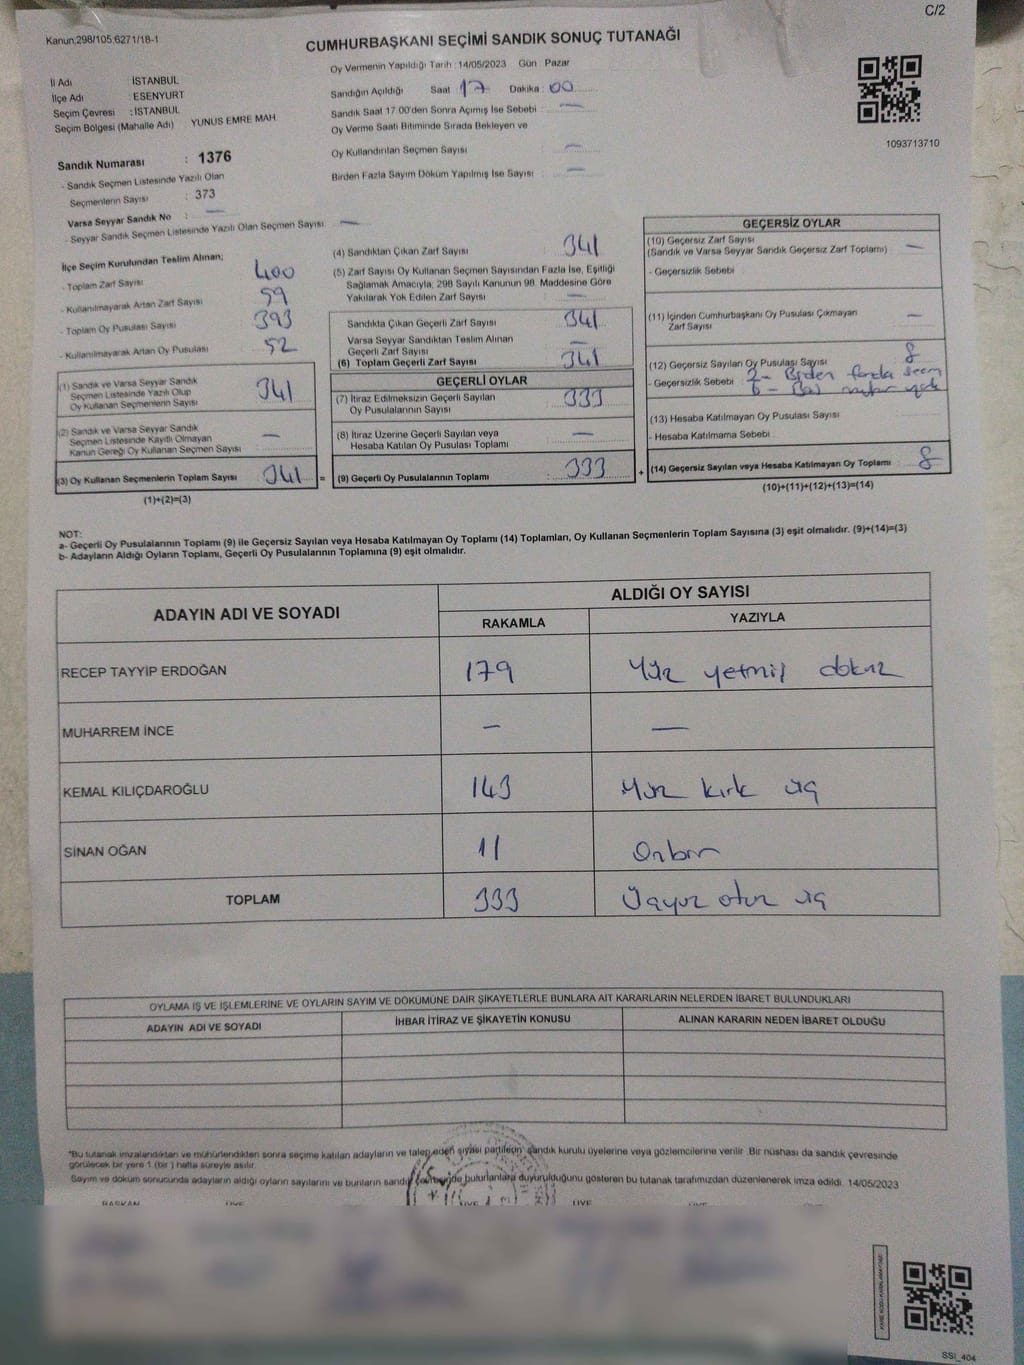 C/2
Kanun;298/105;6271/18-1
CUMHURBAŞKANI SEÇİMİ SANDIK SONUÇ TUTANAĞI
İl Adı : İSTANBUL
İlçe Adı : ESENYURT
Seçim Çevresi : İSTANBUL
Seçim Bölgesi (Mahalle Adı) YUNUS EMRE MAH.
Sandık Numarası : 1376
- Sandık Seçmen Listesinde Yazılı Olan
Seçmenlerin Sayısı : 373
Varsa Seyyar Sandık No : —
- Seyyar Sandık Seçmen Listesinde Yazılı Olan Seçmen Sayısı : —
Oy Vermenin Yapıldığı Tarih :14/05/2023 Gün : Pazar
Sandığın Açıldığı Saat 17 Dakika : 00
Sandık Saat 17.00'den Sonra Açımış İse Sebebi : —
Oy Verme Saati Bitiminde Sırada Bekleyen ve
Oy Kullandırılan Seçmen Sayısı : —
Birden Fazla Sayım Döküm Yapılmış İse Sayısı : —
1093713710
İlçe Seçim Kurulundan Teslim Alınan;
- Toplam Zarf Sayısı : 400
- Kullanılmayarak Artan Zarf Sayısı : 59
- Toplam Oy Pusulası Sayısı : 393
- Kullanılmayarak Artan Oy Pusulası : 52
(1) Sandık ve Varsa Seyyar Sandık
Seçmen Listesinde Yazılı Olup
Oy Kullanan Seçmenlerin Sayısı : 341
(2) Sandık ve Varsa Seyyar Sandık
Seçmen Listesinde Kayıtlı Olmayan
Kanun Gereği Oy Kullanan Seçmen Sayısı : —
(3) Oy Kullanan Seçmenlerin Toplam Sayısı : 341 =
(1)+(2)=(3)
(4) Sandıktan Çıkan Zarf Sayısı : 341
(5) Zarf Sayısı Oy Kullanan Seçmen Sayısından Fazla İse, Eşitliği
Sağlamak Amacıyla, 298 Sayılı Kanunun 98. Maddesine Göre
Yakılarak Yok Edilen Zarf Sayısı : —
Sandıkta Çıkan Geçerli Zarf Sayısı : 341
Varsa Seyyar Sandıktan Teslim Alınan
Geçerli Zarf Sayısı : —
(6) Toplam Geçerli Zarf Sayısı : 341
GEÇERLİ OYLAR
(7) İtiraz Edilmeksizin Geçerli Sayılan
Oy Pusulalarının Sayısı : 333
(8) İtiraz Üzerine Geçerli Sayılan veya
Hesaba Katılan Oy Pusulası Toplamı : —
(9) Geçerli Oy Pusulalarının Toplamı : 333 +
GEÇERSİZ OYLAR
(10) Geçersiz Zarf Sayısı
(Sandık ve Varsa Seyyar Sandık Geçersiz Zarf Toplamı) : —
- Geçersizlik Sebebi :
(11) İçinden Cumhurbaşkanı Oy Pusulası Çıkmayan
Zarf Sayısı : —
(12) Geçersiz Sayılan Oy Pusulası Sayısı : 8
- Geçersizlik Sebebi : 2 - Birden fazla seçim
6 -
(13) Hesaba Katılmayan Oy Pusulası Sayısı :
- Hesaba Katılmama Sebebi :
(14) Geçersiz Sayılan veya Hesaba Katılmayan Oy Toplamı : 8
(10)+(11)+(12)+(13)=(14)
NOT:
a- Geçerli Oy Pusulalarının Toplamı (9) ile Geçersiz Sayılan veya Hesaba Katılmayan Oy Toplamı (14) Toplamları, Oy Kullanan Seçmenlerin Toplam Sayısına (3) eşit olmalıdır. (9)+(14)=(3)
b- Adayların Aldığı Oyların Toplamı, Geçerli Oy Pusulalarının Toplamına (9) eşit olmalıdır.
ADAYIN ADI VE SOYADI
ALDIĞI OY SAYISI
RAKAMLA YAZIYLA
RECEP TAYYİP ERDOĞAN 179 Yüz yetmiş dokuz
MUHARREM İNCE — —
KEMAL KILIÇDAROĞLU 143 Yüz kırk üç
SİNAN OĞAN 11 Onbir
TOPLAM 333 Üçyüz otuz üç
OYLAMA İŞ VE İŞLEMLERİNE VE OYLARIN SAYIM VE DÖKÜMÜNE DAİR ŞİKAYETLERLE BUNLARA AİT KARARLARIN NELERDEN İBARET BULUNDUKLARI
ADAYIN ADI VE SOYADI İHBAR İTİRAZ VE ŞİKAYETİN KONUSU ALINAN KARARIN NEDEN İBARET OLDUĞU
"Bu tutanak imzalandıktan ve mühürlendikten sonra seçime katılan adayların ve talep eden siyasi partilerin sandık kurulu üyelerine veya gözlemcilerine verilir. Bir nüshası da sandık çevresinde
görülecek bir yere 1 (bir) hafta süreyle asılır.
Sayım ve döküm sonucunda adayların aldığı oyların sayılarını ve bunların sandık çevresinde bulunanlara duyurulduğunu gösteren bu tutanak tarafımızdan düzenlenerek imza edildi. 14/05/2023
BAŞKAN ÜYE ÜYE ÜYE
SSİ_404